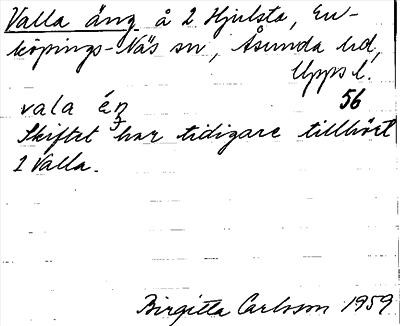 Valla äng å 2 Hjulsta, En-
köpings-Näs sn, Åsunda hd,
Upps l.
vala éŋ 56
Skiftet har tidigare tillhört
2 Valla.
Birgitta Carlsson 1959